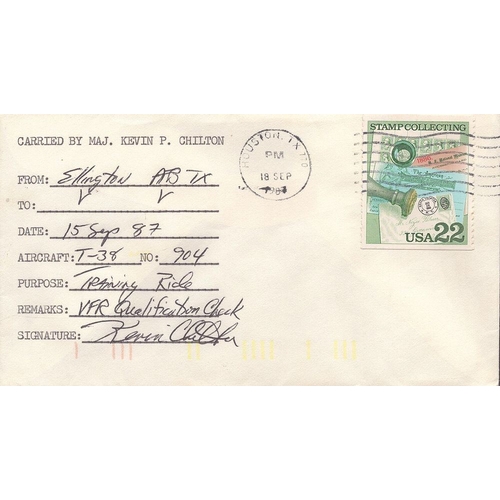 CARRIED BY MAJ. KEVIN P. CHILTON
FROM: Ellington AB TX
TO:
DATE: 15 Sep 87
AIRCRAFT: T-38 NO: 904
PURPOSE: Training Ride
REMARKS: VFR Qualification Check
SIGNATURE: Kevin Chilton
HOUSTON, TX 770
PM
18 SEP
1987
STAMP COLLECTING
USA 22